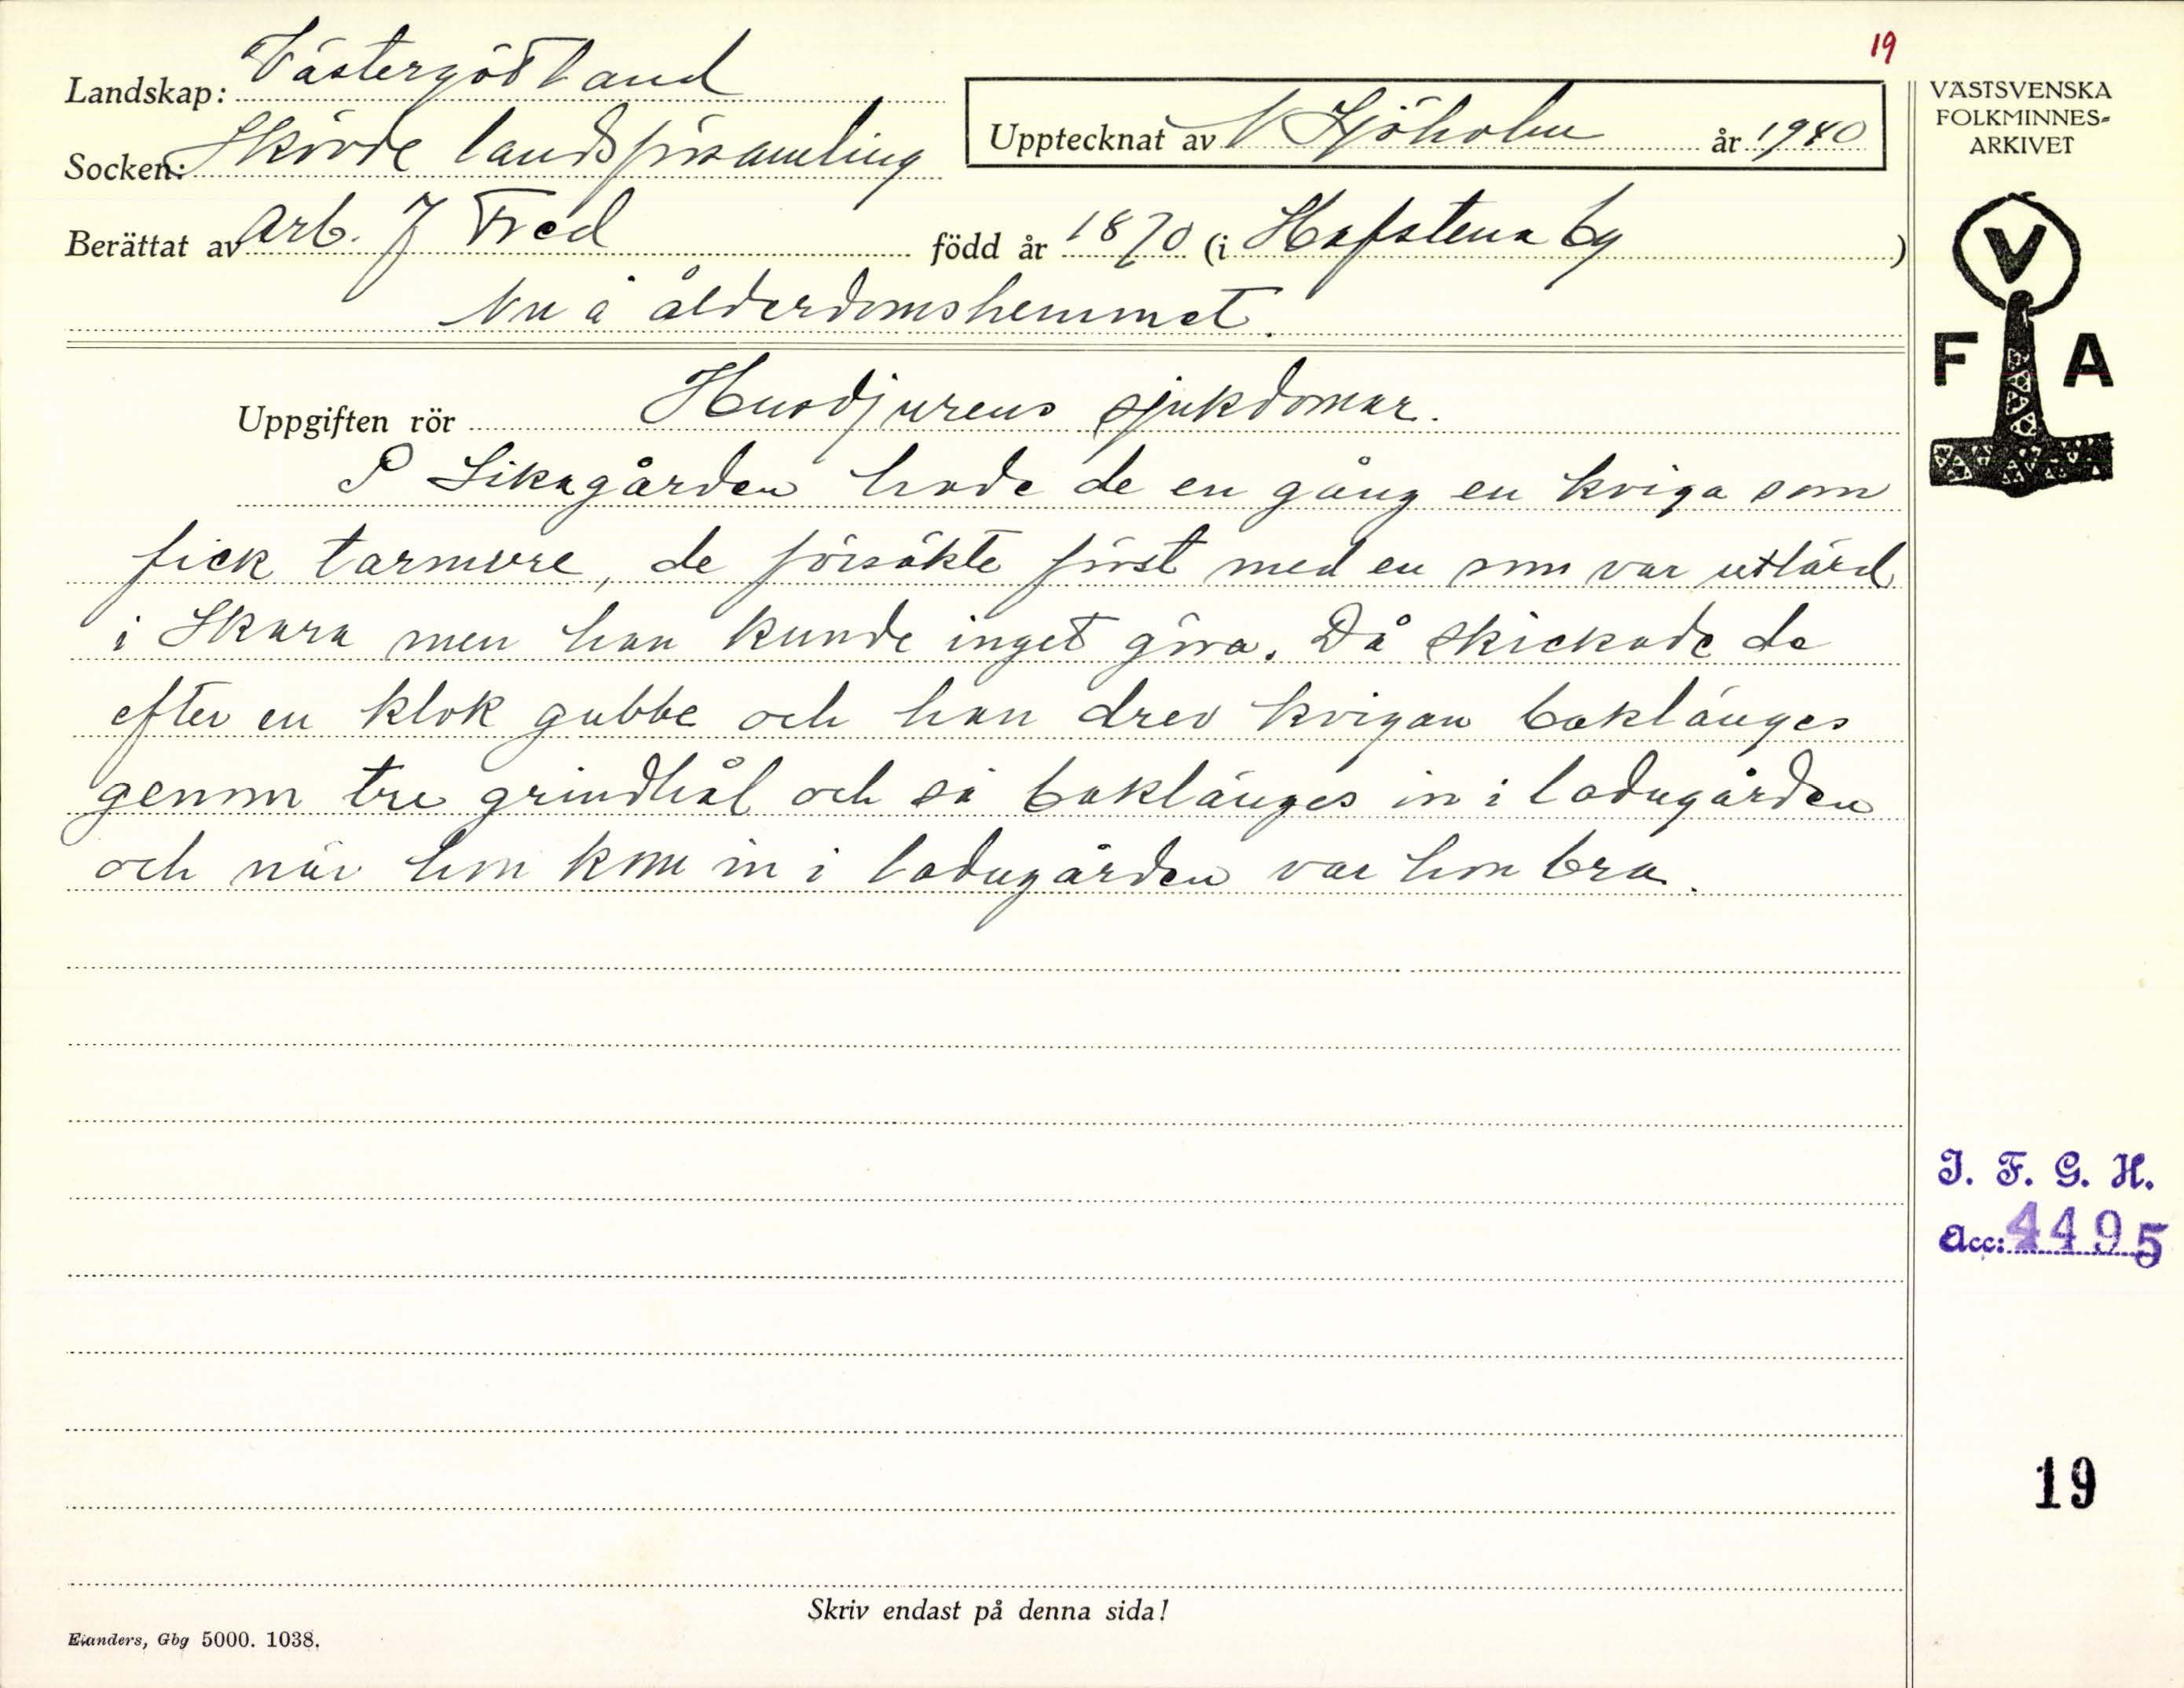 19
Landskap: Västergötland
Socken: Skövde landsförsamling
Upptecknat av N Sjöholm år 1940
Berättat av Arb. J Fred född år 1870 (i Hafstena by )
Nu å ålderdomshemmet.
VÄSTSVENSKA
FOLKMINNES-
ARKIVET
V
F A
Uppgiften rör Husdjurens sjukdomar.
I Likagården hade de en gång en kviga som
fick tarmvre, de försökte först med en som var utlärd
i Skara men han kunde inget göra. Då skickade de
efter en klok gubbe och han drev kvigan baklänges
genom tre grindhål och så baklänges in i ladugården
och när hon kom in i ladugården var hon bra.
I. F. G. H.
Acc: 4495
19
Skriv endast på denna sida!
Elanders, Gbg 5000. 1038.